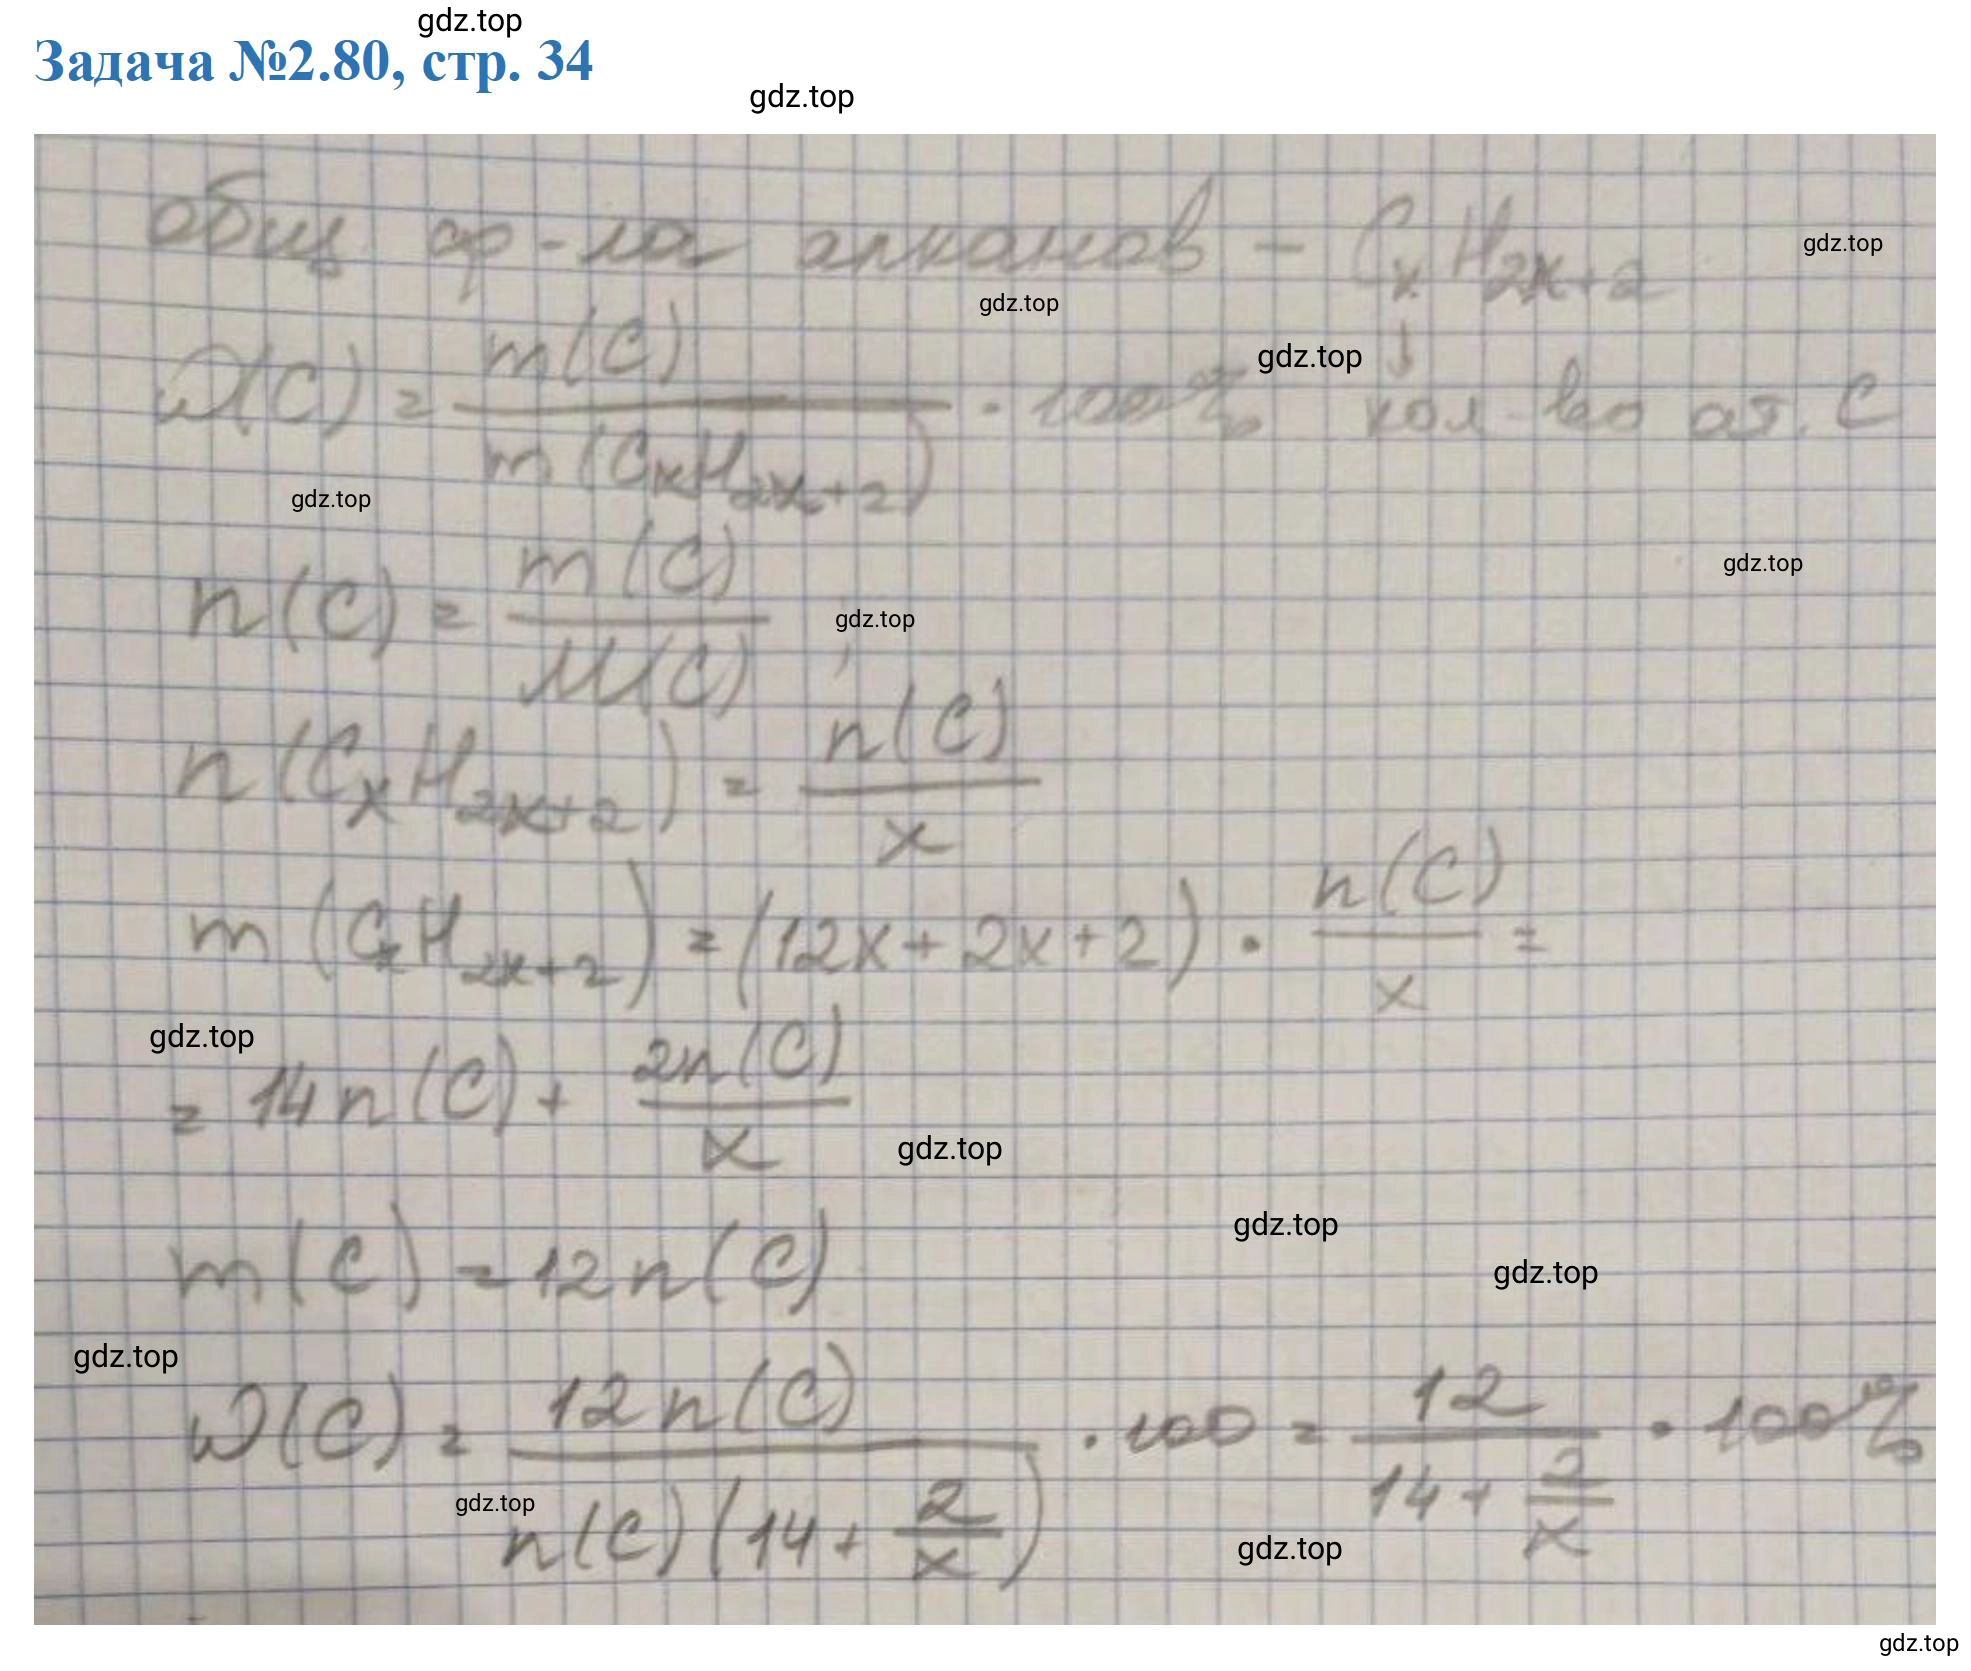 gdz.top
Задача №2.80, стр. 34
gdz.top
общ. ф-ла алканов - CₓH₂ₓ₊₂
gdz.top
gdz.top
↓
gdz.top
ω(C) = m(C) / m(CₓH₂ₓ₊₂) · 100% кол-во ат. C
gdz.top
gdz.top
n(C) = m(C) / M(C) ;
gdz.top
n(CₓH₂ₓ₊₂) = n(C) / x
m(CₓH₂ₓ₊₂) = (12x + 2x + 2) · n(C) / x =
gdz.top
= 14n(C) + 2n(C) / x
gdz.top
gdz.top
m(C) = 12n(C)
gdz.top
gdz.top
ω(C) = 12n(C) / n(C)(14 + 2/x) · 100 = 12 / 14 + 2/x · 100%
gdz.top
gdz.top
gdz.top